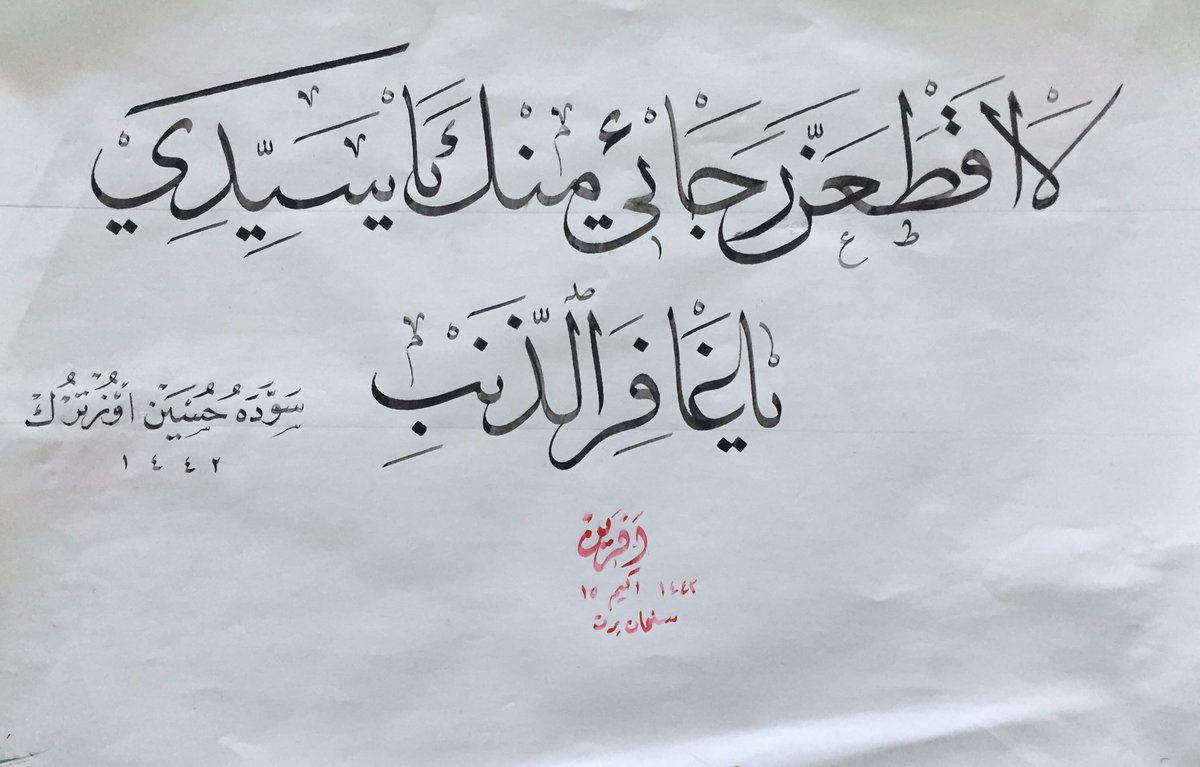 لَا اقْطَعَنَّ رَجَائِي مِنْكَ يَا سَيِّدِي
يَا غَافِرَ الذَّنْبِ
سَوَّدَهُ حُسَيْن اوُزْتُرْك
١٤٤٢
آفرين
١٤٤٢ اكيم ١٥
سليمان